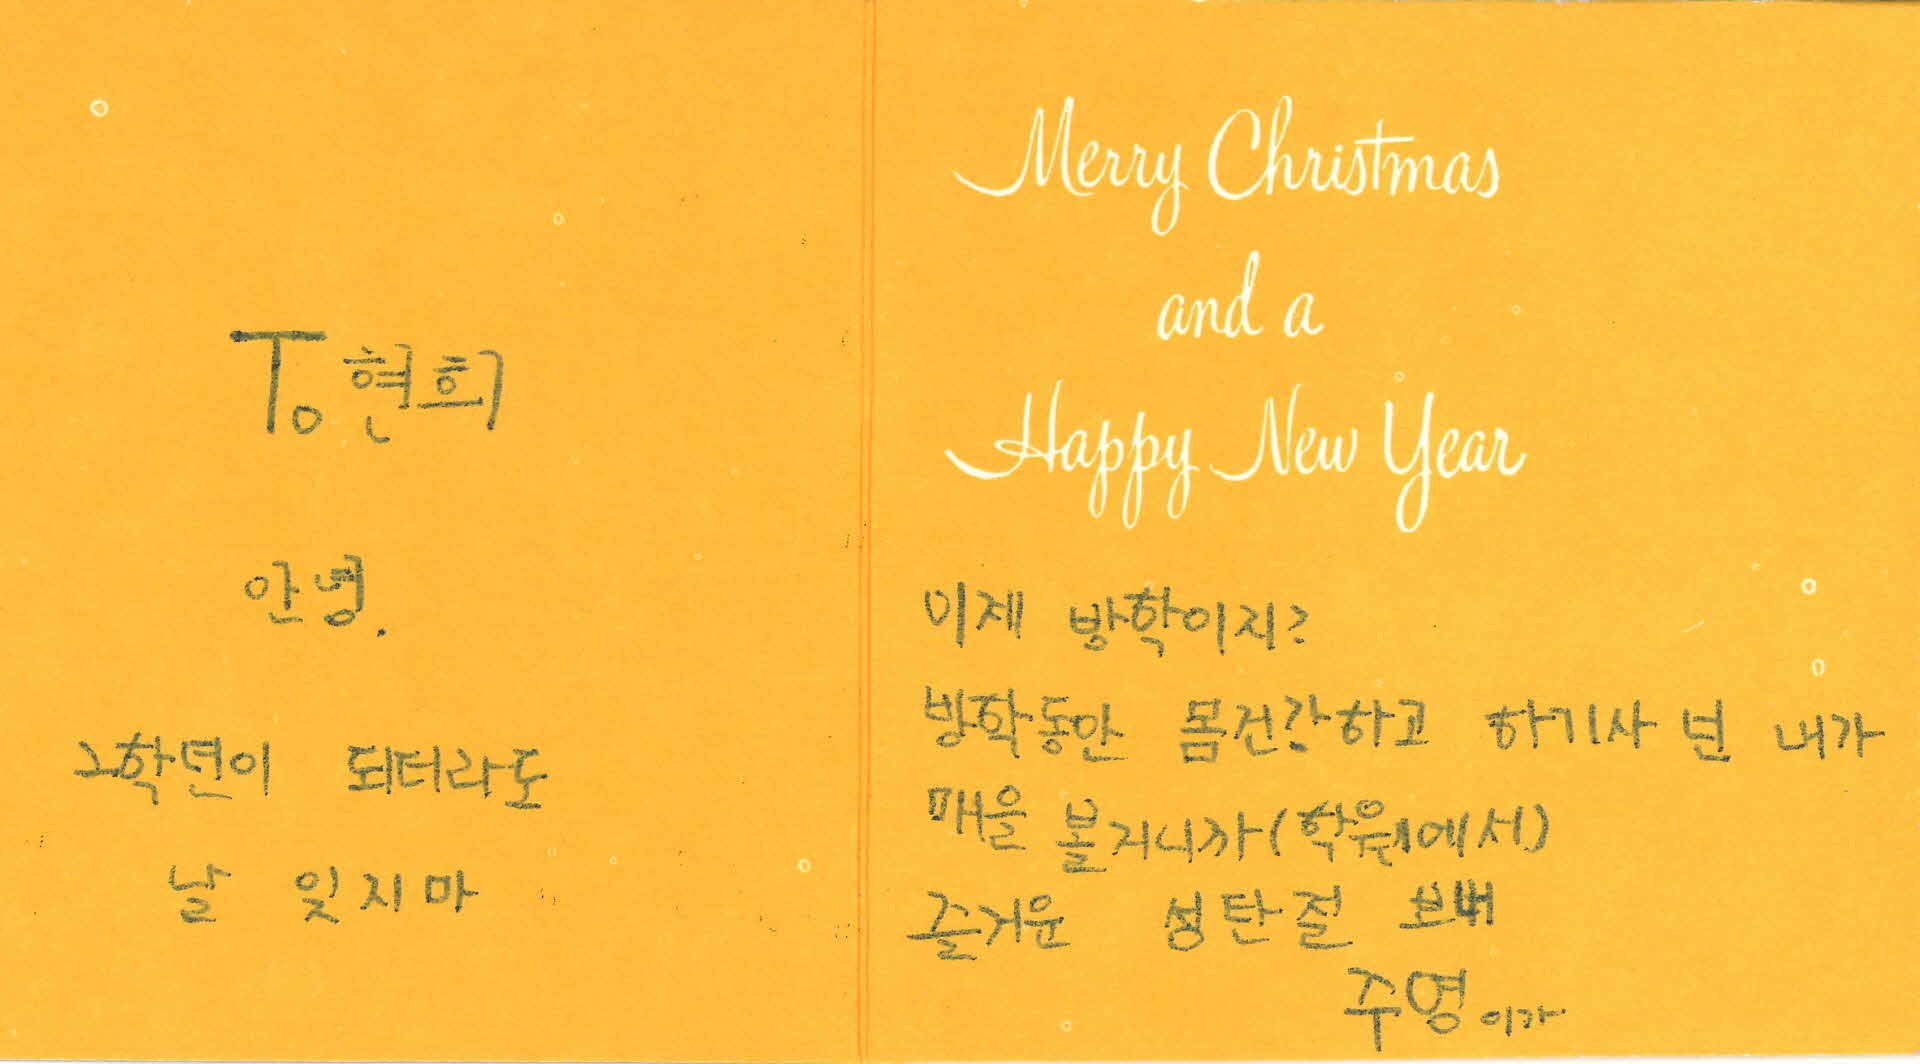 To 현희
안녕.
2학년이 되더라도
날 잊지마
Merry Christmas
and a
Happy New Year
이제 방학이지?
방학동안 몸건강하고 하기사 넌 내가
매을 볼지니까(학원에서)
즐거운 성탄절 보내
주영이가